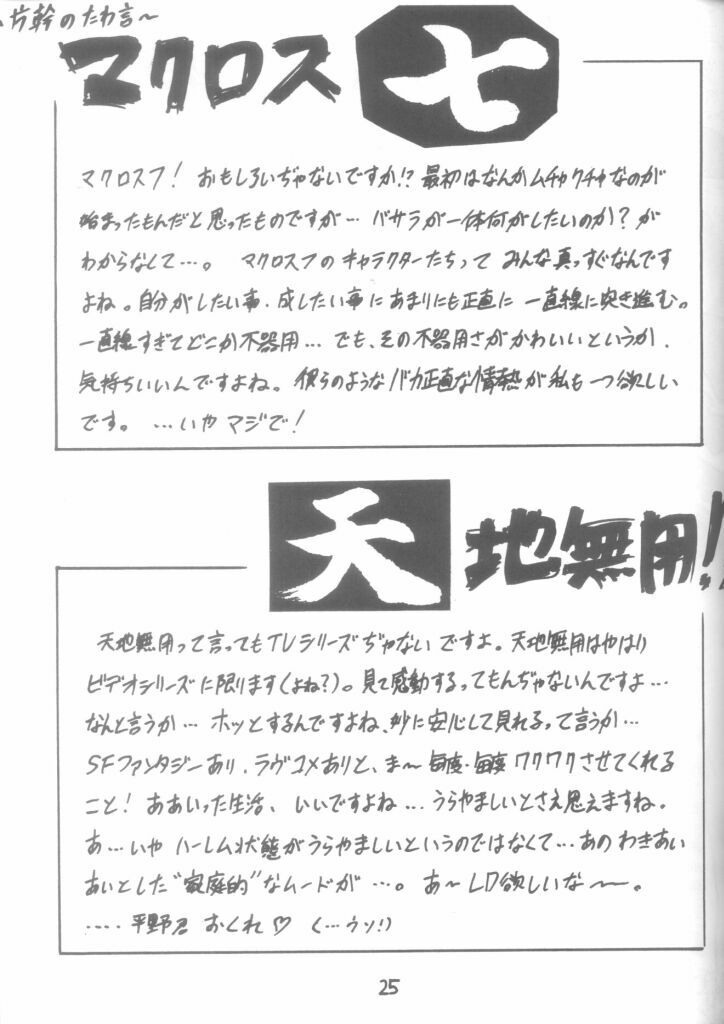 幹のたわ言～
マクロス七
マクロス7! おもしろいぢゃないですか!? 最初はなんかムチャクチャなのが
始まったもんだと思ったものですが… バサラが一体何がしたいのか? が
わからなくて…。 マクロス7のキャラクターたちって みんな真っすぐなんです
よね。自分がしたい事、成したい事に あまりにも正直に 一直線に突き進む。
一直線すぎてどこか不器用… でも、その不器用さがかわいいというか、
気持ちいいんですよね。 彼らのようなバカ正直な情熱が私も一つ欲しい
です。 …いや マジで!
天地無用!
天地無用って言ってもTVシリーズぢゃないですよ。天地無用はやはり
ビデオシリーズに限ります(よね?)。見て感動するってもんぢゃないんですよ…
なんと言うか… ホッとするんですよね、妙に安心して見れるって言うか…
SFファンタジーあり、ラヴコメありと、ま～ 毎度・毎度 ワクワクさせてくれる
こと! ああいった生活、 いいですよね… うらやましいとさえ思えますね。
あ…いや ハーレム状態がうらやましいというのではなくて…あの わきあい
あいとした“家庭的”なムードが …。 あ～ LD欲しいな～。
…… 平野君 おくれ♡ (…ウソ!)
25